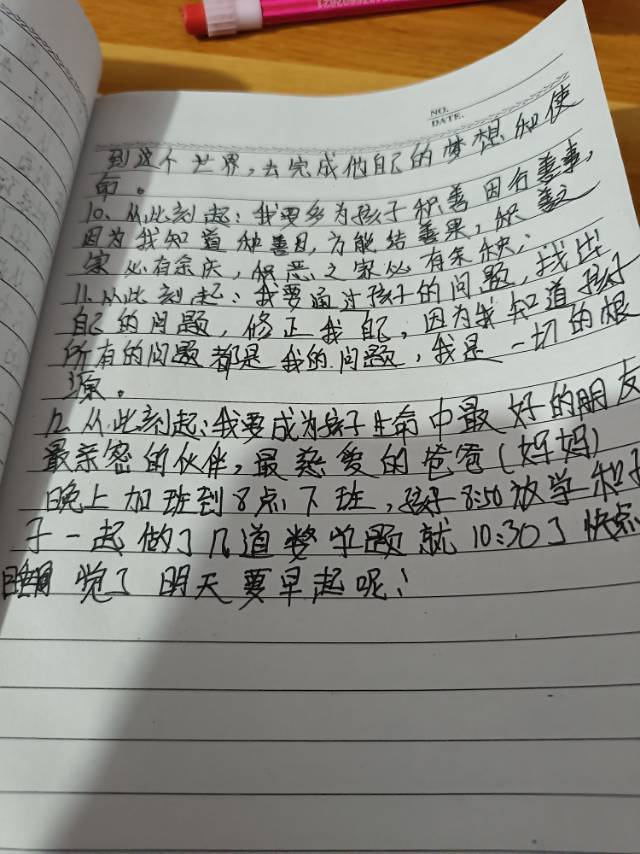 NO.
DATE.
到这个世界,去完成他自己的梦想和使
命。
10、从此刻起:我要多为孩子积善因行善事,
因为我知道种善因,方能结善果,积善之
家必有余庆,积恶之家必有余殃;
11.从此刻起:我要通过孩子的问题,找出
自己的问题,修正我自己,因为我知道孩子
所有的问题都是我的问题,我是一切的根
源。
12、从此刻起:我要成为孩子生命中最好的朋友
最亲密的伙伴,最慈爱的爸爸(妈妈)
晚上加班到8点下班,孩子8:50放学和孩
子一起做了几道数学题就10:30了快点
睡觉了明天要早起呢!